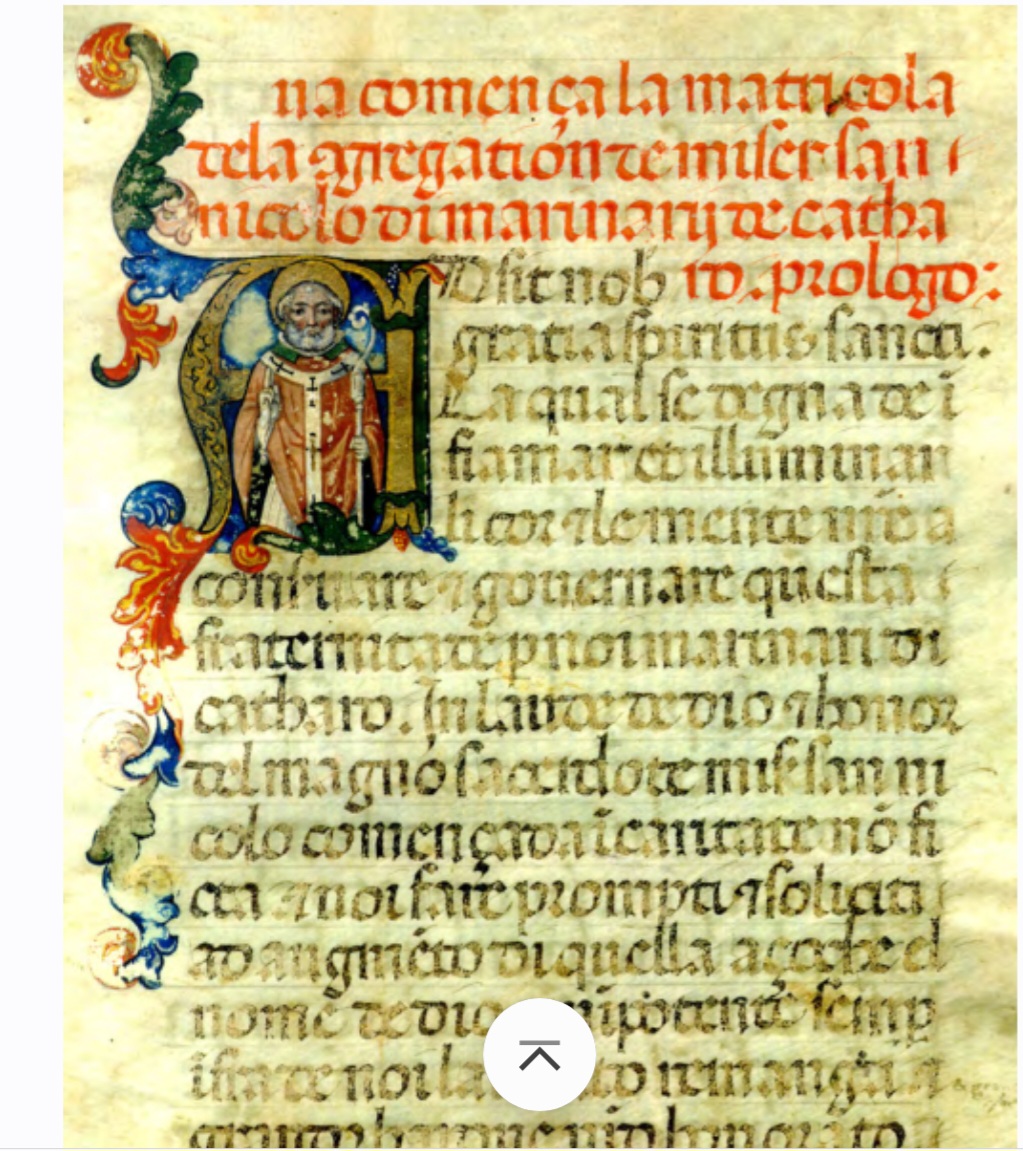 na comença la matricola
dela agregation de miser san
nicolo di marinarij de catha
ro. prologo:
Adsit nob
gratia spiritus sancti.
La qual se degna de i
fiamar et illuminar
li cor ⁊ le mente nr̄e a
conẜuare ⁊ gouernare questa
fraternitade p noi marinari di
catharo. In laude de dio ⁊ honor
del magno sacerdote miẜ san ni
colo començada ī caritate nō fi
cta ⁊ noi fare prompti ⁊ soliciti
ad augmēto di quella açoche el
nome de dio
de noi